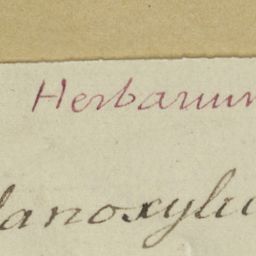 Herbarium
lanoxylu